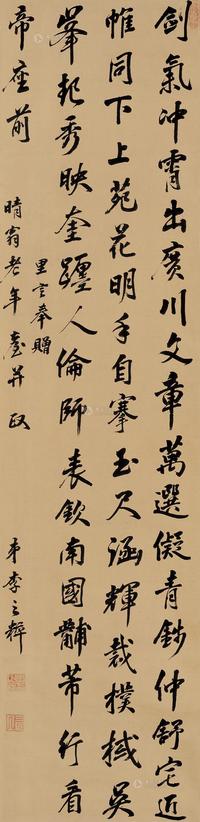 劍氣冲霄出廣川文章萬選儗青錢仲舒宅近
帷同下上苑花明手自搴玉尺涵輝裁樸棫吳
峯起秀映奎躔人倫師表欽南國黼芾行看
帝座前
里言奉贈
晴翁老年臺并政
弟李之粹